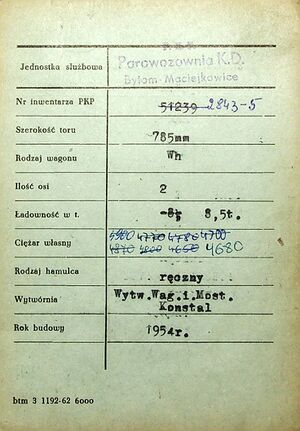 Jednostka służbowa Parowozownia K.D.
Bytom-Maciejkowice
Nr inwentarza PKP 51239 2843-5
Szerokość toru 785mm
Rodzaj wagonu Wh
Ilość osi 2
Ładowność w t. 8, 8,5t.
Ciężar własny 4770 4780 4700
4870 4800 4650 4680
Rodzaj hamulca ręczny
Wytwórnia Wytw.Wag.i.Most.
Konstal
Rok budowy 1954r.
btm 3 1192-62 6000